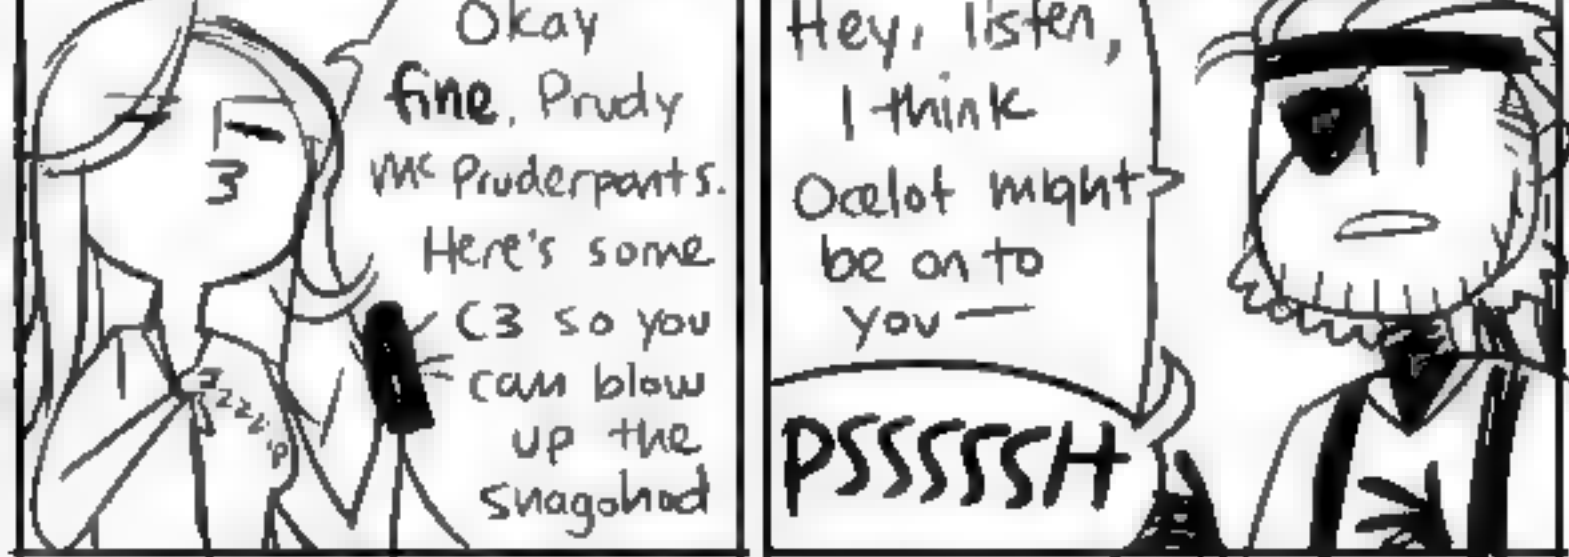 Okay
fine, Prudy
Mc Pruderpants.
Here's some
C3 so you
can blow
up the
snagohod
zzzip
Hey, listen,
I think
Ocelot might
be on to
you—
PSSSSSH